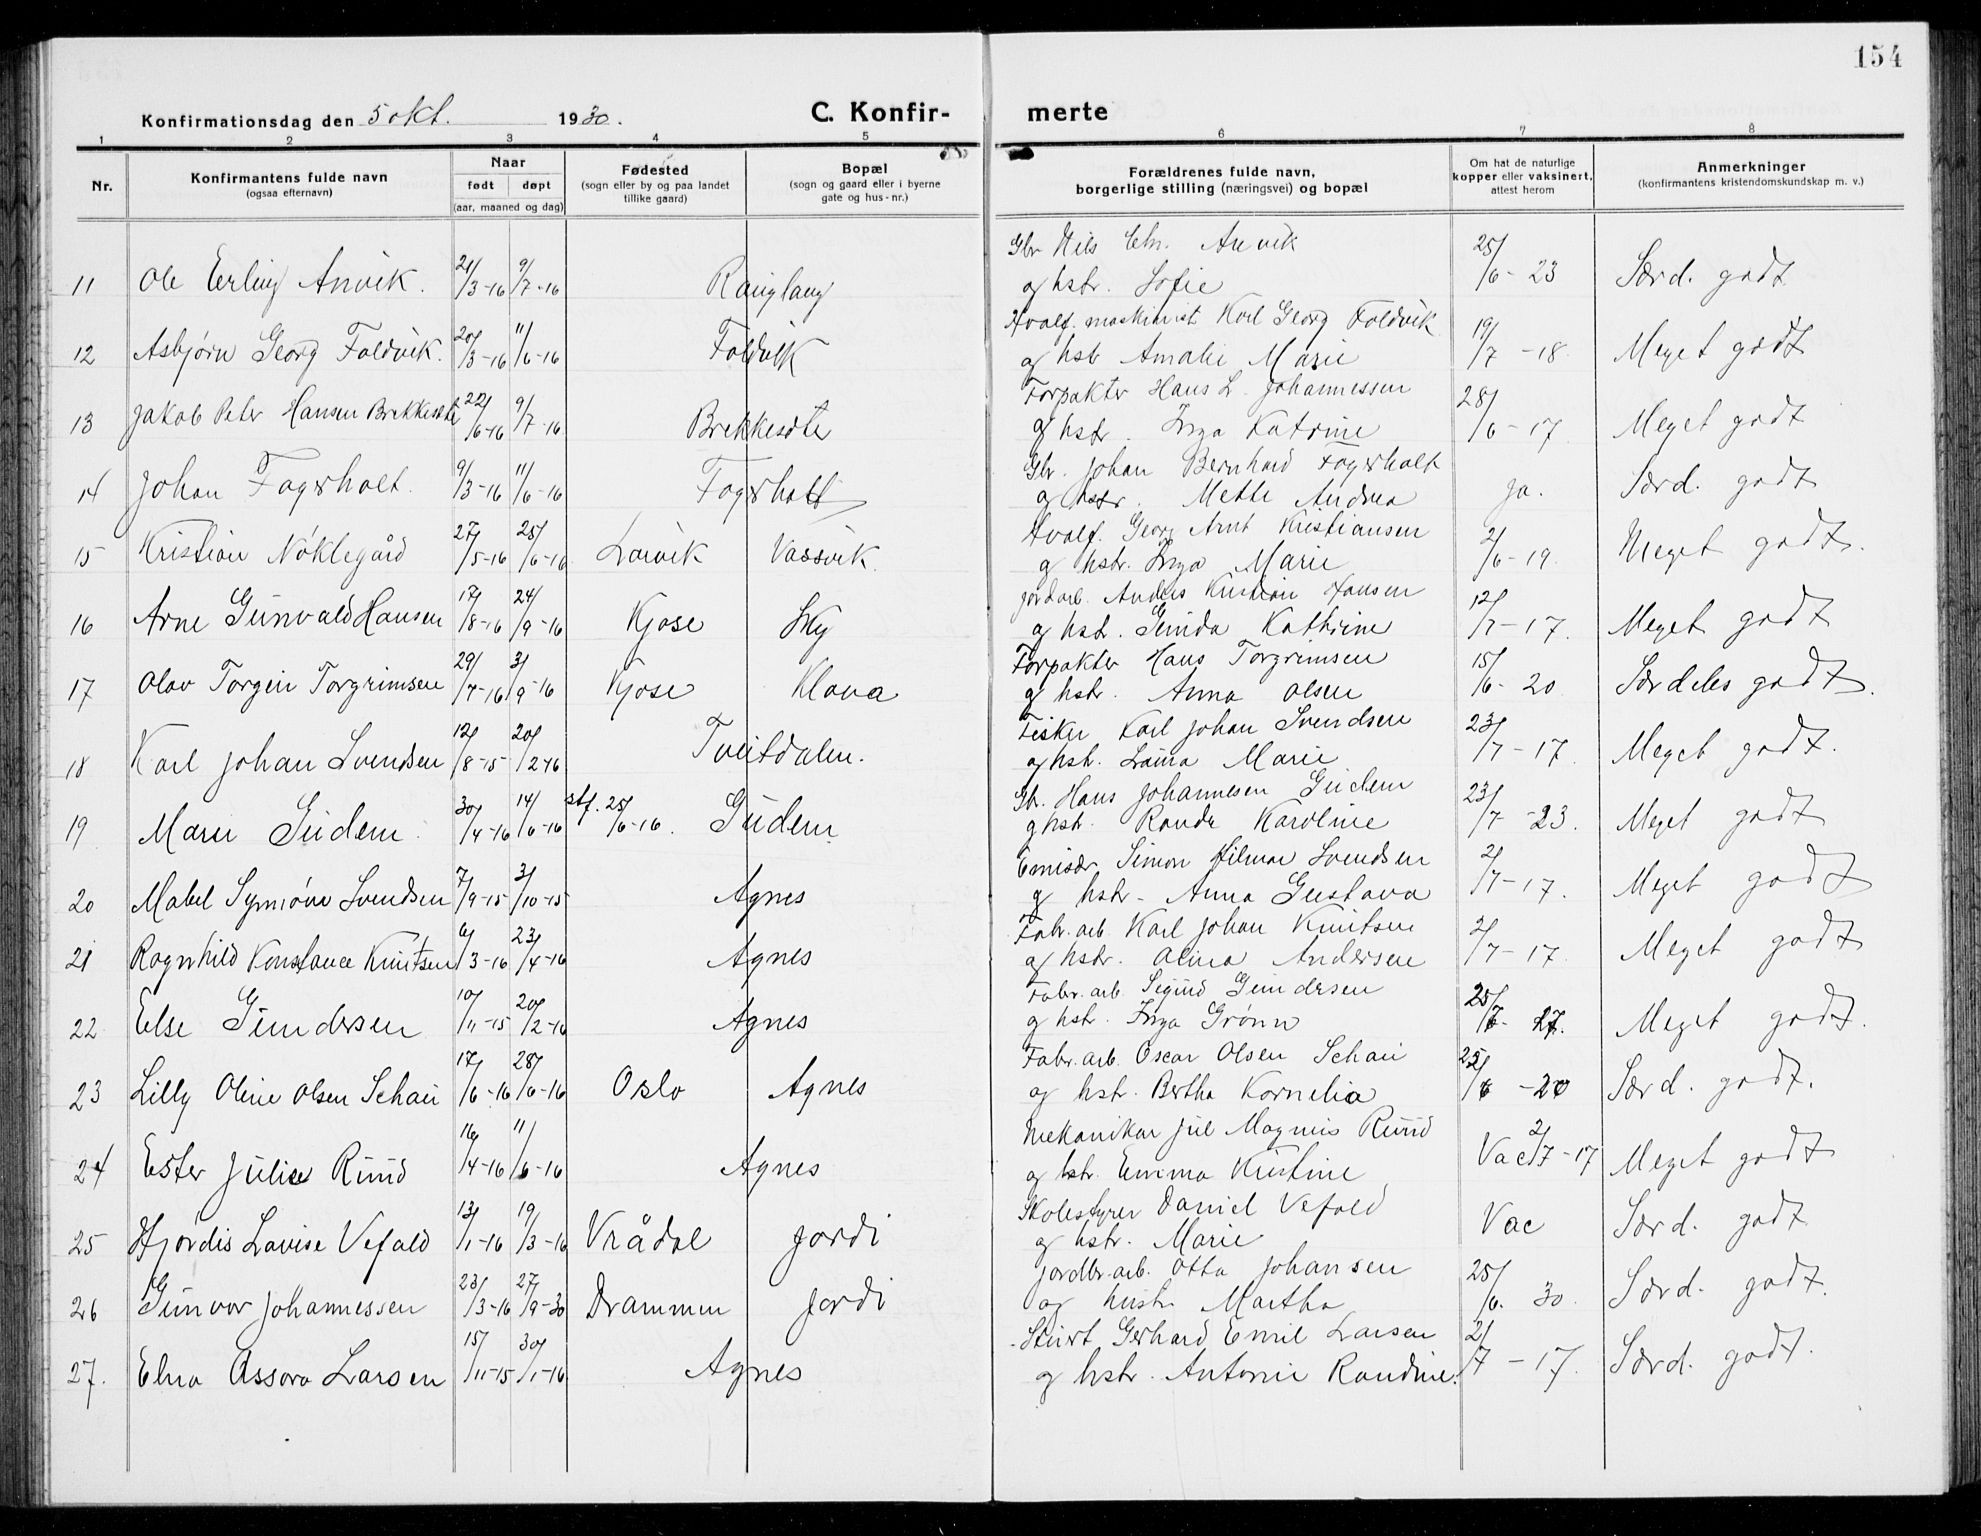 154
Konfirmationsdag den 5 okt. 1930.
C. Konfir-
merte
1 2 3 4 5 6 7 8
Nr.
Konfirmantens fulde navn
(ogsaa efternavn)
Naar
født døpt
(aar, maaned og dag)
Fødested
(sogn eller by og paa landet
tillike gaard)
Bopæl
(sogn og gaard eller i byerne
gate og hus-nr.)
Forældrenes fulde navn,
borgerlige stilling (næringsvei) og bopæl
Om hat de naturlige
kopper eller vaksinert,
attest herom
Anmerkninger
(konfirmantens kristendomskundskap m. v.)
Gbr Nils Chr. Anvik
11 Ole Erling Anvik. 21/3-16 9/7-16 og hstr. Sofie 25/6-23 Særd. godt
Hvalf. maskinist Karl Georg Foldvik
12 Asbjørn Georg Foldvik. 20/3-16 11/6-16 Foldvik og hstr Amalie Marie 19/7-18 Meget godt
Forpakter Hans L. Johannessen
13 Jakob Peter Hansen Brekkesete 22/6-16 9/7-16 Brekkesete og hstr. Inga Katrine 28/6-17 Meget godt
Gbr. Johan Bernhard Fagerholt
14 Johan Fagerholt. 9/3-16 11/6-16 Fagerholt og hstr. Mette Andrea ja. Særd. godt
Hvalf. Georg Arnt Kristiansen
15 Kristian Nøklegård 27/5-16 25/6-16 Larvik Vassvik. og hstr. Inga Marie 2/6-19. Meget godt.
Jordarb. Anders Kristian Hansen
16 Arne Gunvald Hansen 17/8-16 24/9-16 Kjose Sky og hstr. Gunda Kathrine 12/7-17. Meget godt
Forpakter Hans Torgrimsen
17 Olav Torgeir Torgrimsen 29/7-16 3/9-16 Kjose Klova og hstr. Anna Olsen 15/6-20 Særdeles godt.
Fisker Karl Johan Svendsen
18 Karl Johan Svendsen 12/8-15 20/2-16 Tveitdalen. og hstr. Laura Marie 23/7-17. Meget godt.
Gbr. Hans Johannesen Gudem
19 Marie Gudem. 30/4-16 14/6-16 stf. 25/6-16. Gudem og hstr. Rande Karoline 23/7-23. Meget godt
Emisær Simon Hilmar Svendsen
20 Mabel Synnøve Svendsen 7/9-15 3/10-15 Agnes og hstr. Anna Gustava 2/7-17. Meget godt
Fabr. arb. Karl Johan Knutsen
21 Ragnhild Konstance Knutsen 6/3-16 23/4-16 Agnes og hstr. Alma Andersen 2/7-17 Meget godt
Fabr. arb. Sigurd Gundersen
22 Else Gundersen 10/11-15 20/2-16 Agnes og hstr. Inga Grønn Meget godt.
Fabr. arb. Oscar Olsen Schau
23 Lilly Oline Olsen Schau 17/6-16 28/6-16 Oslo Agnes og hstr. Bertha Kornelia Særd. godt.
Mekaniker Jul Magnus Ruud
24 Ester Julie Ruud 16/4-16 11/6-16 Agnes og hstr. Emma Kristine Vac 2/7-17 Meget godt
Skolestyrer Daniel Vefald
25 Hjørdis Lovise Vefald 13/1-16 19/3-16 Vrådal Jordi og hstr. Marie Vac Særd. godt
Jordbr. arb. Otto Johansen
26 Gunvor Johannessen 23/3-16 27/9-30 Drammen Jordi og hustr. Martha 25/6. 30 Særd. godt.
Stuert Gerhard Emil Larsen
27. Elna Assora Larsen 15/11-15 30/1-16 Agnes og hstr. Antonie Randine. 2/7-17. Særd. godt.